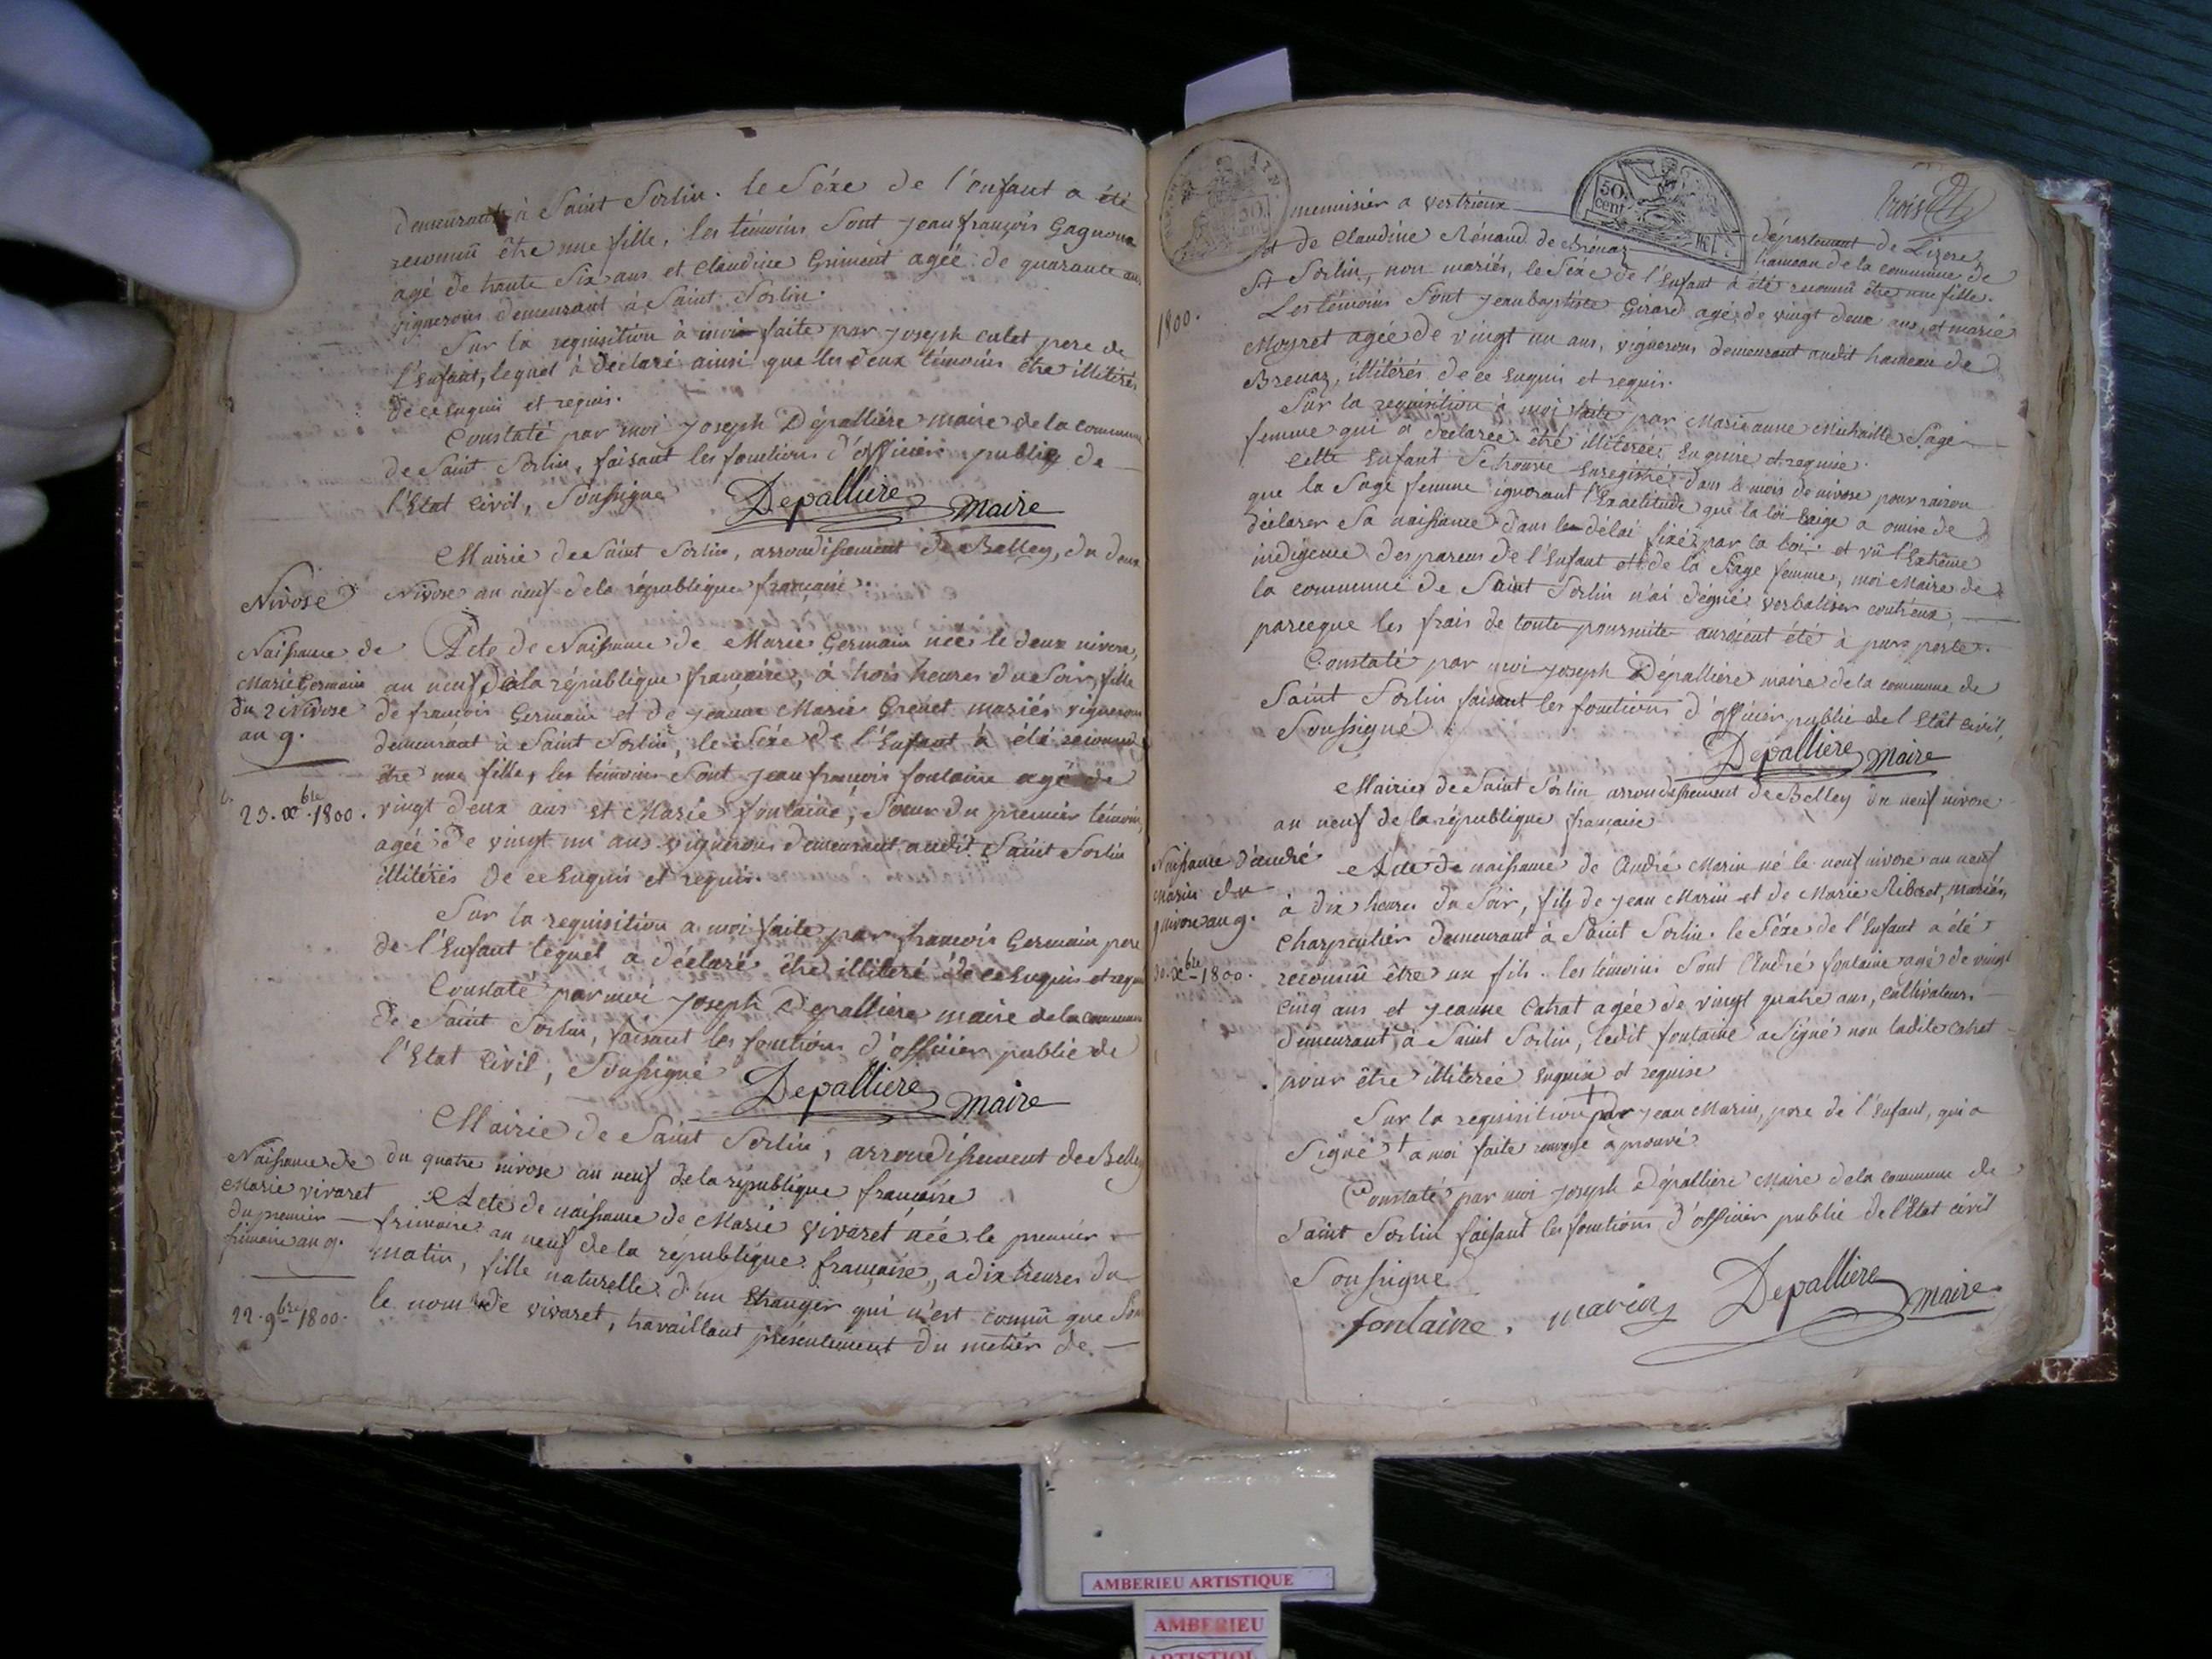 demeurants à Saint Sorlin. le Séxe de l'enfant a été
reconnû être une fille, les témoins Sont jean françois Gagneur
agé de trante Six ans et Claudine Griment agée de quarante ans
vignerons demeurant à Saint Sorlin.
Sur la requisition à moi faite par joseph Culet pere de
l'Enfant, lequel à déclaré ainsi que les deux témoins être illitérés
de ce Enquis et requis.
Constaté par moi Joseph Dépallière maire de la commune
de Saint Sorlin, faisant les fonctions d'officier public de
l'Etat Civil, Soussigné
Depalliere maire
Mairie de Saint Sorlin, arrondissement de Belley, du deux
Nivose
Nivose an neuf de la république française.
Naissance de
Marie Germain
du 2 Nivose
an 9.
23. xbre. 1800.
Acte de Naissance de Marie Germain née le deux nivose,
an neuf de la république française, à trois heures du Soir, fille
de françois Germain et de jeanne Marie Grenet mariés vignerons
demeurant à Saint Sorlin, le Séxe de l'Enfant à été reconnû
être une fille, les témoins Sont jean françois fontaine agé de
vingt deux ans et Marie fontaine, Sœur du premier témoin,
agée de vingt un ans vignerons demeurant audit Saint Sorlin
illitérés de ce Enquis et requis.
Sur la requisition a moi faite par francois Germain pere
de l'Enfant lequel a déclaré être illiteré de ce Enquis et requis
Constaté par moi Joseph Depalliere maire de la commune
de Saint Sorlin, faisant les fonctions d'officier public de
l'Etat Civil, Soussigné
Depalliere maire
Mairie de Saint Sorlin, arrondissement de Belley
du quatre nivose an neuf de la république française
Naissance de
Marie vivaret
du premier
frimaire an 9.
22. 9bre 1800.
Acte de naissance de Marie Vivaret née le premier
frimaire an neuf de la république française, a dix heures du
matin, fille naturelle d'un Etranger qui n'est connû que Sous
le nom de vivaret, travaillant présentement du métier de
50 cent
trois
menuisier a Vertrieux département de Lizere
et de Claudine Rénaud de Brenaz hameau de la commune de
St Sorlin, non mariés, le Séxe de l'Enfant à été reconnû être une fille.
1800.
Les témoins Sont jean baptiste Girard agé de vingt deux ans, et marie
Moyret agée de vingt un ans, vignerons demeurant audit hameau de
Brenaz, illitérés de ce Enquis et requis.
Sur la requisition à moi faite par Marieanne Michaille Sage
femme qui a déclarée être illiterée, Enquise et requise.
Cette Enfant Se trouve Enregistré dans le mois de nivose pour raison
que la Sage femme ignorant l'Exactitude que la loi Exige a omise de
déclarer Sa naissance dans le délai fixé par la loi. et vû l'Extrême
indigence des parens de l'Enfant et de la Sage femme, moi Maire de
la commune de Saint Sorlin n'ai daigné verbaliser contr'eux,
parceque les frais de toute poursuite auroient été à pure perte.
Constaté par moi Joseph Dépalliere maire de la commune de
Saint Sorlin faisant les fonctions d'officier public de l'Etat civil,
Soussigné
Depalliere maire
Mairie de Saint Sorlin arrondissement de Belley du neuf nivose
an neuf de la république française
Naissance d'andré
marin du
9 nivose an 9.
30. xbre 1800.
Acte de naissance de André Marin né le neuf nivose an neuf
à dix heures du Soir, fils de jean Marin et de Marie Riberet, mariés,
Charpentier demeurant à Saint Sorlin. le Séxe de l'Enfant a été
reconnû être un fils. les témoins Sont André fontaine agé de vingt
cinq ans et jeanne Cahat agée de vingt quatre ans, Cultivateurs
demeurant à Saint Sorlin, ledit fontaine a Signé non ladite Cahat
pour être illiterée Enquise et requise
Sur la requisition + par jean Marin, pere de l'Enfant, qui a
Signé + a moi faite renvoye aprouvé
Constaté par moi Joseph Dépalliere Maire de la commune de
Saint Sorlin faisant les fonctions d'officier public de l'Etat civil
Soussigné
fontaine. marin Depalliere maire
AMBERIEU ARTISTIQUE
AMBERIEU
ARTISTIQU